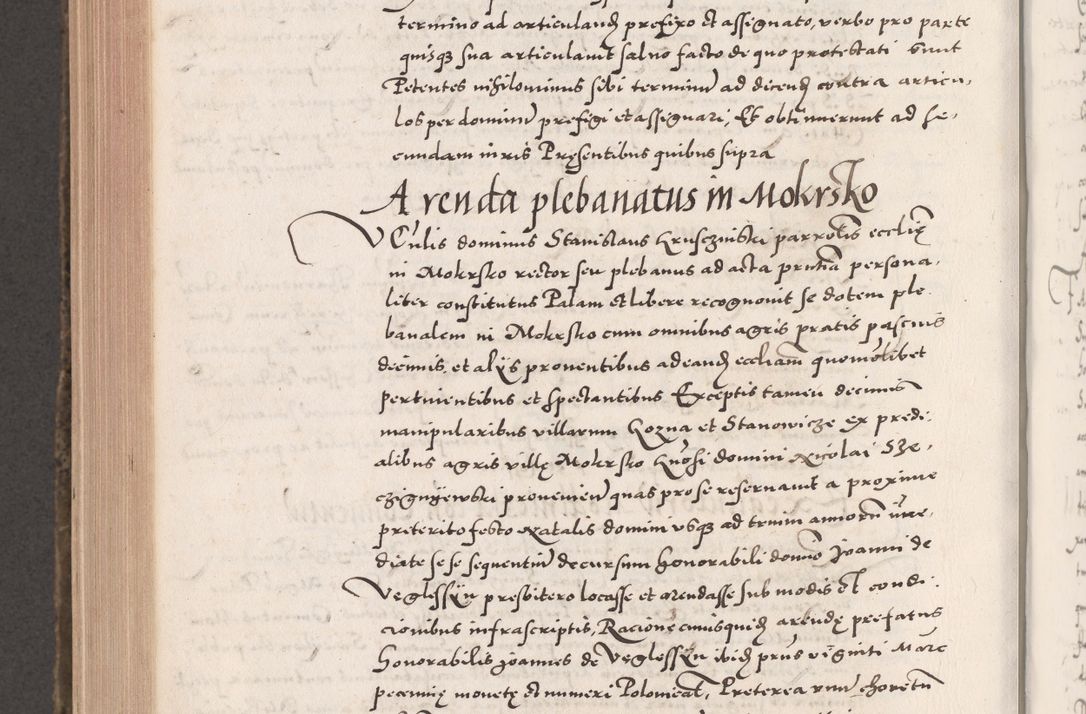 termino ad articulandȝ prefixo et assignato, verbo pro parte
quisqȝ sua articulavit salvo facto de quo protestati sunt
Petentes nihilominus sibi terminũ ad dicendȝ contra articu-
los per dominũ prefigi et assignari, Et obtinuerunt ad se-
cundam iuris Pręsentibus quibus supra
Arenda plebanatus in Mokrsko
Veñlis dominus Stanislaus Krusczinski parrotłis ecclię
in Mokrsko rector seu plebanus ad acta pñtia persona-
liter constitutus Palam et libere recognovit se dotem ple-
banalem in Mokrsko cum omnibus agris pratis pascuis
decimis, et alys proventibus ad eandȝ eccliam quomołlibet
pertinientibus et spectantibus Exceptis tamen decimis
manipularibus villarum Kozna et Stanowicze ex predi-
alibus agris villę Mokrsko gñosi domini Nicolai Sze-
czignyewski provenień quas pro se reservavit a proxime
preterito festo Natalis domini usqȝ ad trium annorũ im̃e-
diate se se sequentiũ decursum honorabili domño Joanni de
Veglessyn presbitero locasse et arendasse sub modis et condi-
cionibus infrascriptis, Racione cuiusquidȝ arendę prefatus
honorabilis Joannes de Veglessyn ibidȝ pr̃us viginti Marc
pecunię monetę et numeri Polonical, Preterea unũ choretũ